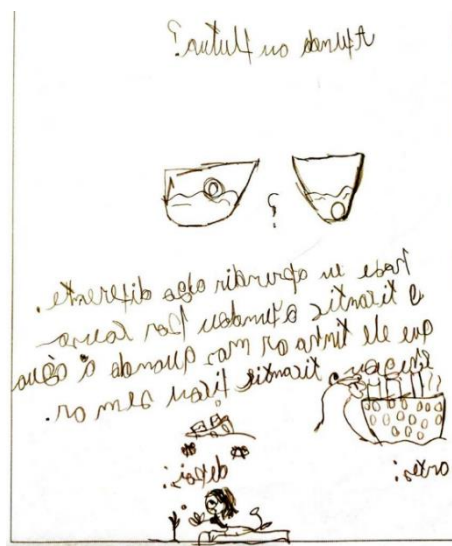 Afunda ou flutua?
?
eu aprendir algo diferente.
o titanic afundou Por causa
que ele tinha ar mas quando a água
titanic ficou sem ar.
antes:
depois: